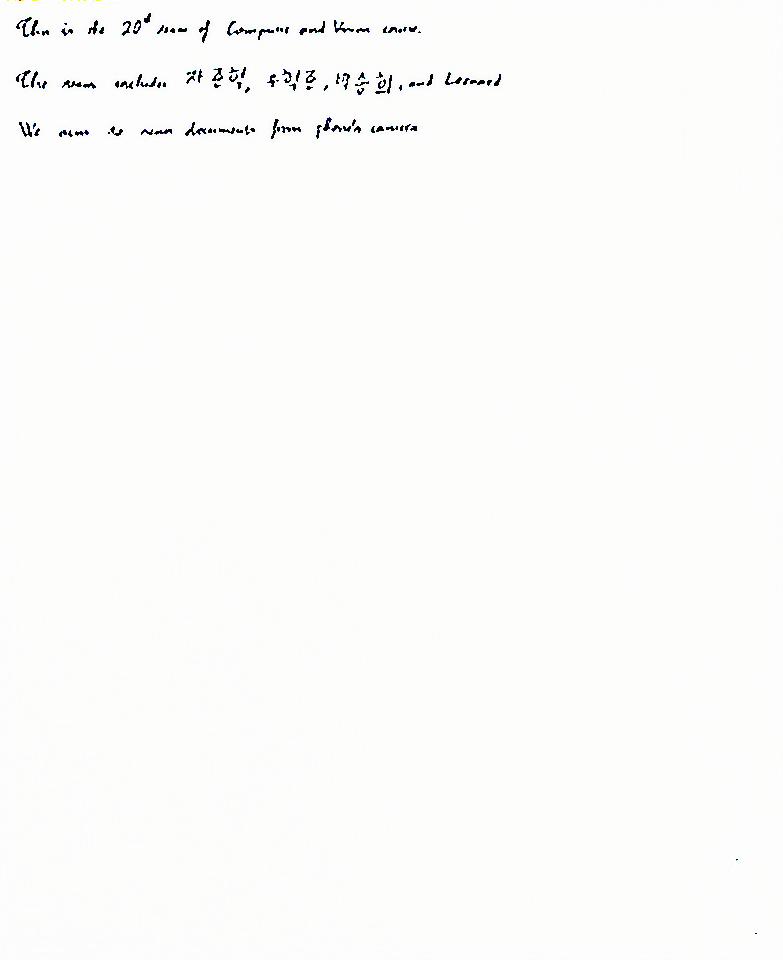 This is the 20th team of Computer and Vision course.
The team includes 차준혁, 우혁준, 박승희, and Leonard
We aim to scan documents from phone's camera